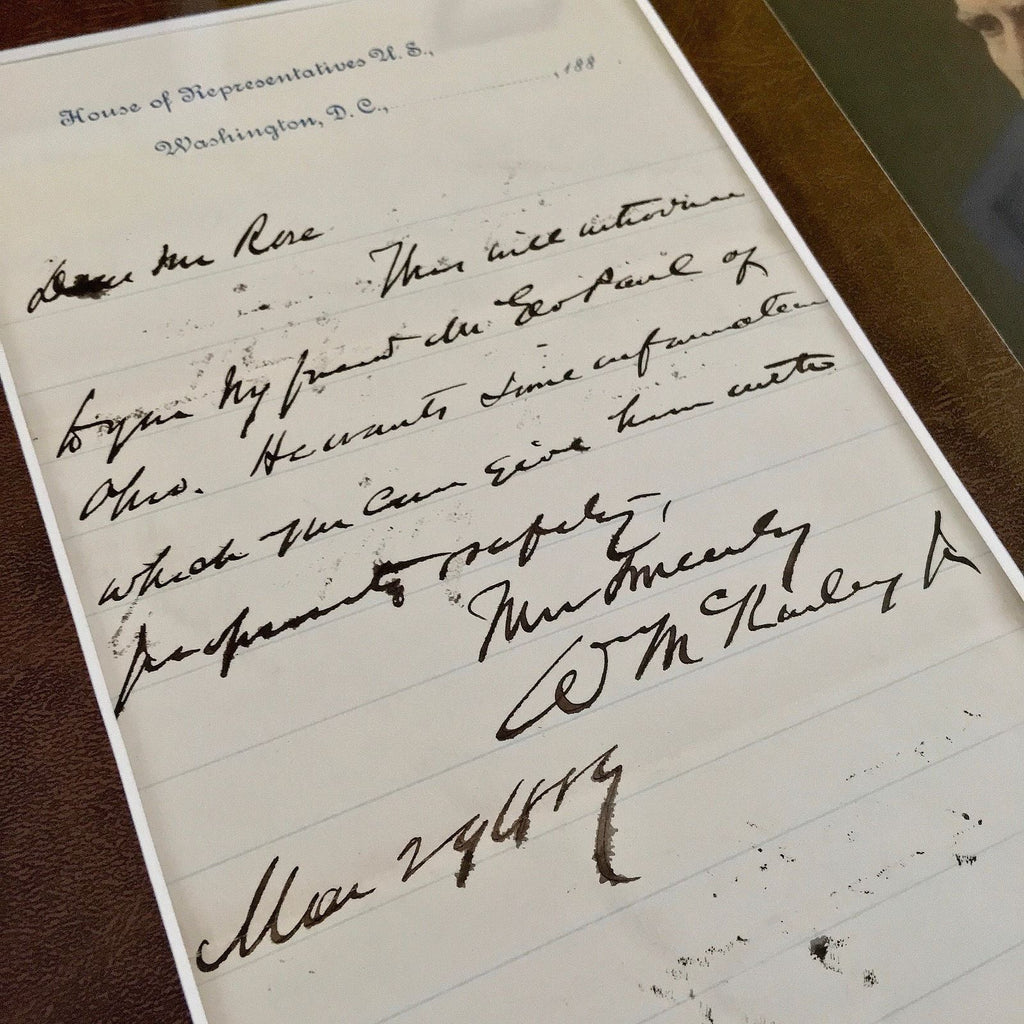 House of Representatives U. S.,
Washington, D. C., ..................., 188 .
Dear Mr Rose
This will introduce
to you my friend Mr Geo Paul of
Ohio. He wants some information
which you can give him with
perfect safety,
Yours Sincerely
Wm McKinley Jr
Mar 29